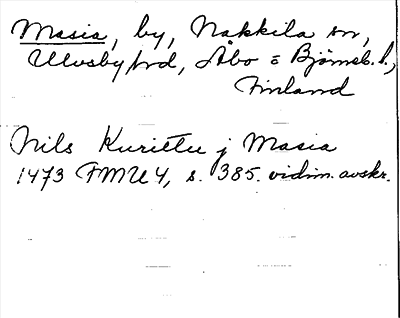 Masia, by, Nakkila sn,
Ulvsby hrd, Åbo o Björneb. l.,
Finland
Nils Kurittu j Masia
1473 FMU 4, s. 385. vidim. avskr.